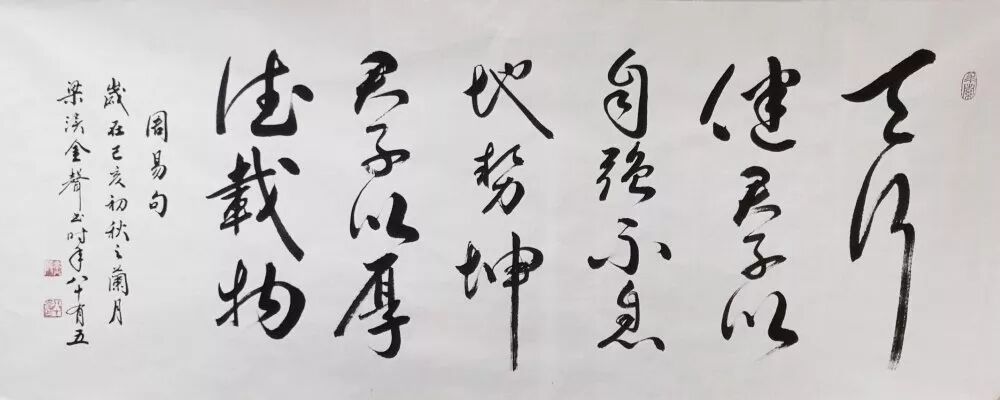 天行
健君子以
自强不息
地势坤
君子以厚
德載物
周易句
歲在己亥初秋之蘭月
梁溪金聲书時年八十有五